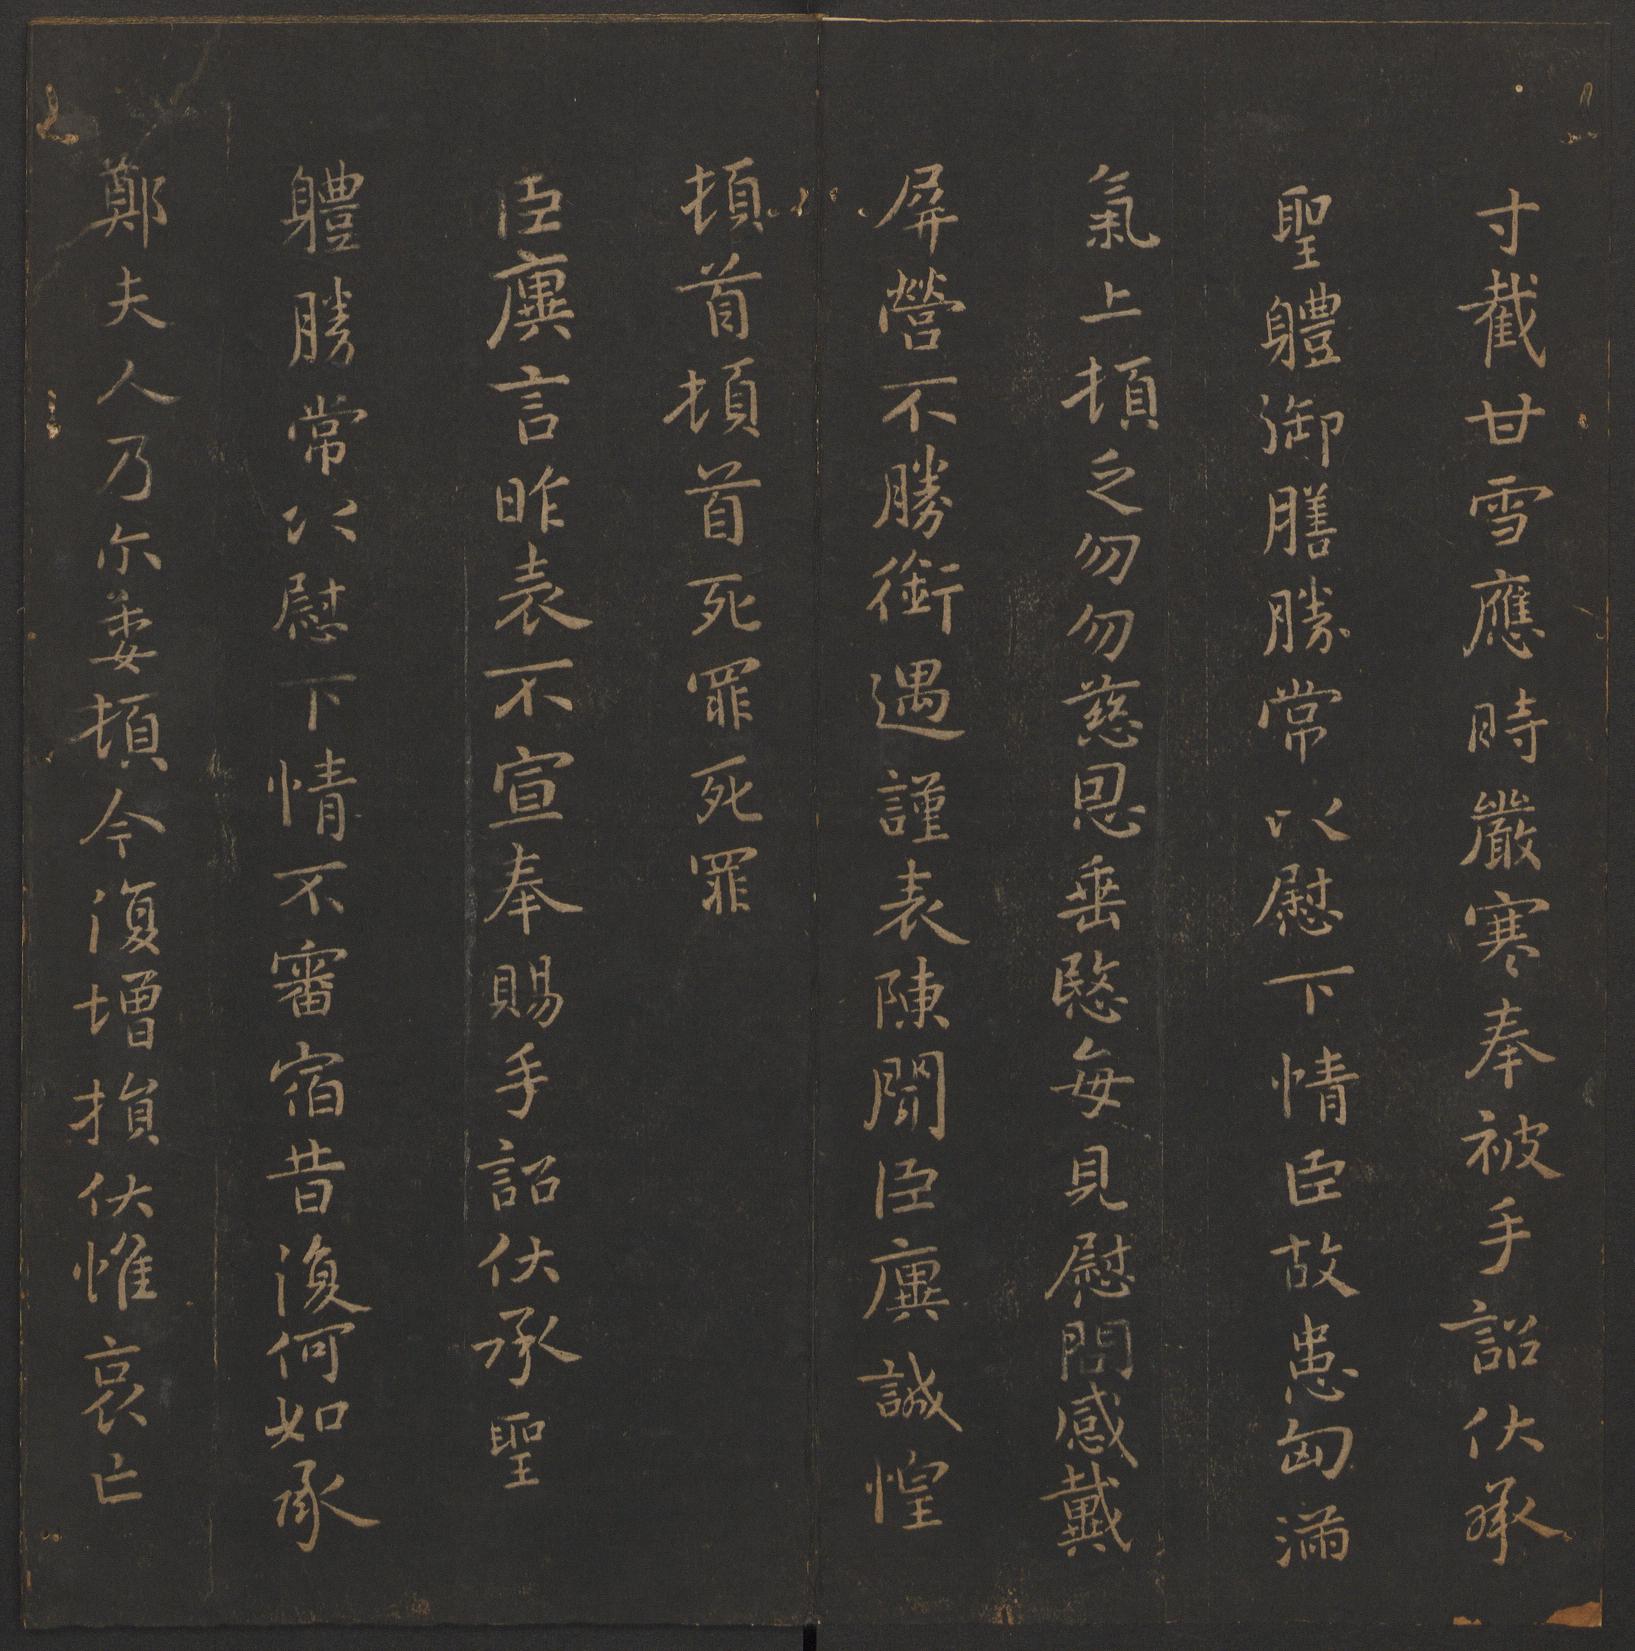 寸截甘雪應時嚴寒奉被手詔伏承
聖軆御膳勝常以慰下情臣故患匈滿
氣上頓乏勿勿慈恩垂愍每見慰問感戴
屏營不勝銜遇謹表陳聞臣廙誠惶
頓首頓首死罪死罪
臣廙言昨表不宣奉賜手詔伏承聖
軆勝常以慰下情不審宿昔復何如承
鄭夫人乃尓委頓今復增損伏惟哀亡